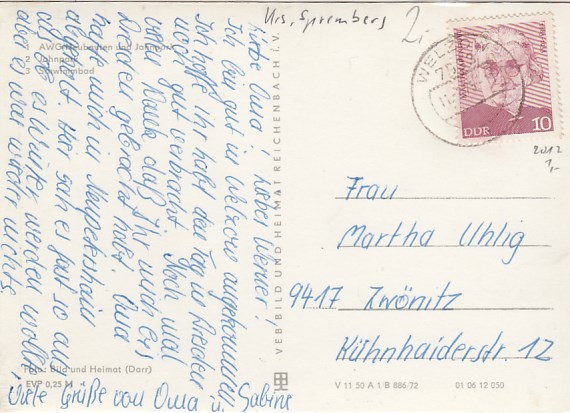 Krs. Spremberg
2,-
AWG Neubauten und Jahnpark
2 Jahnpark
3 Schwimmbad
Liebe Oma! Lieber Werner!
Ich bin gut in Welzow angekommen.
Ich hoffe Ihr habt den Tag in Dresden
noch gut verbracht. Noch mal
vielen Danke, daß Ihr mich bis
Dresden gebracht habt. Oma
hatte mich in Neupetershain
abgeholt. Hier sah es fast so aus
als ob es Winter werden wollte,
aber es war wieder nichts.
Viele Grüße von Oma u. Sabine
Foto: Bild und Heimat (Darr)
EVP 0,25 M
VEB BILD UND HEIMAT REICHENBACH i. V.
WELZOW
DDR 10
2012
1,-
Frau
Martha Uhlig
9417 Zwönitz
Kühnhaiderstr. 12
V 11 50 A 1/B 886/72
01 06 12 050